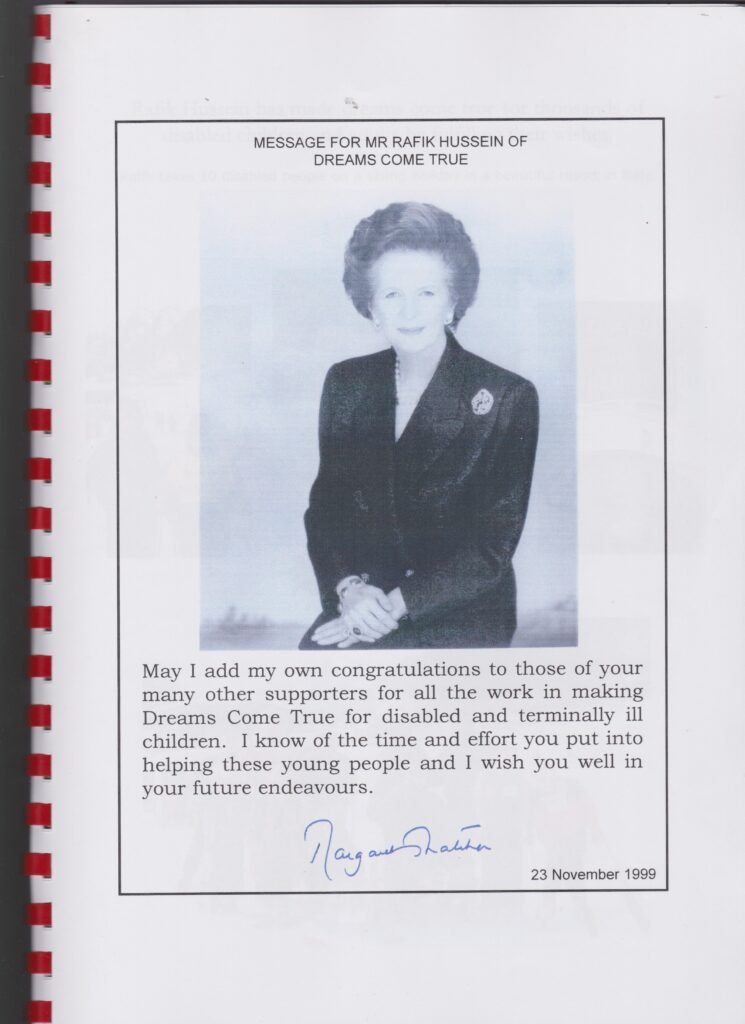 MESSAGE FOR MR RAFIK HUSSEIN OF
DREAMS COME TRUE
May I add my own congratulations to those of your
many other supporters for all the work in making
Dreams Come True for disabled and terminally ill
children. I know of the time and effort you put into
helping these young people and I wish you well in
your future endeavours.
Margaret Thatcher
23 November 1999